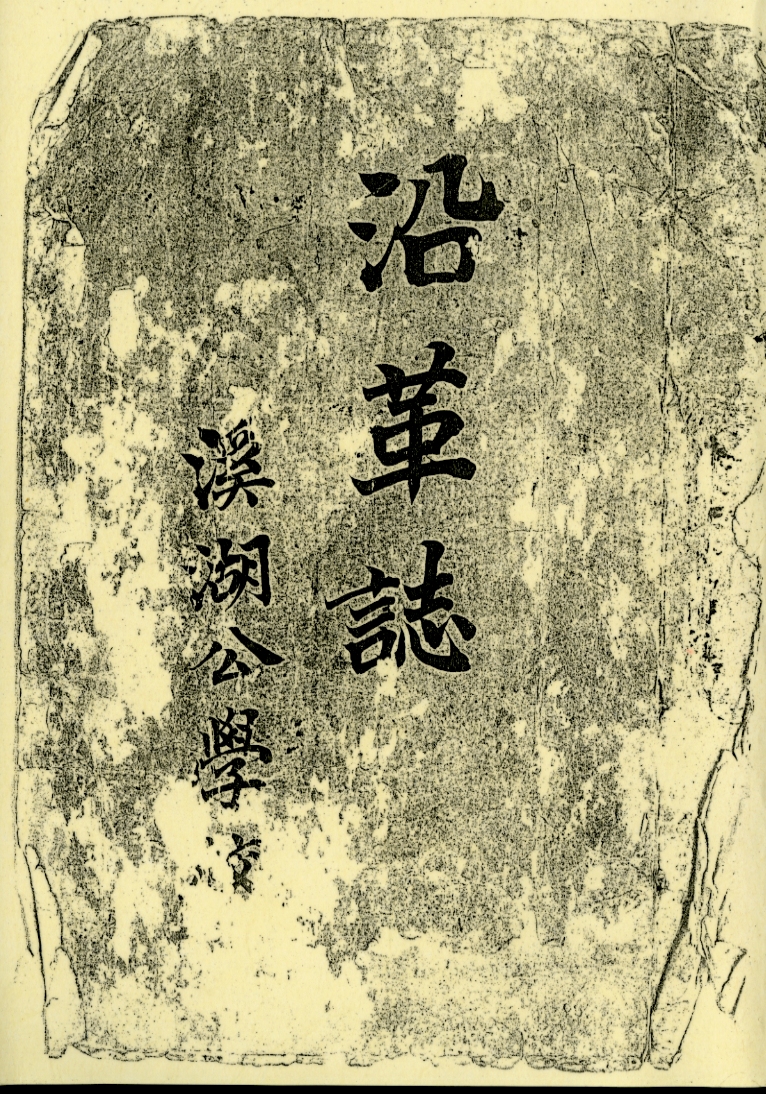 沿革誌
溪湖公學校